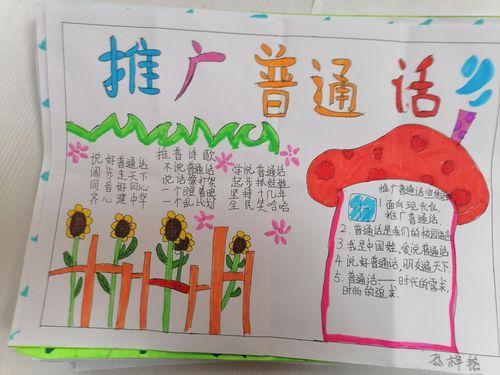 推广普通话
推普诗歌
说好普通话
阔步走天下
同音好同心
齐心建中华
不说普通话
说话像打架
一个瞪着眼
一个乱比划
学说普通
起步
坚持十几年
全民笑哈哈
推广普通话宣传
1. 面向现代化,
推广普通话
2. 普通话是我们的校园语言
3. 我是中国娃,爱说普通话
4. 说好普通话,朋友遍天下.
5. 普通话——时代的需求,
时尚的追求.